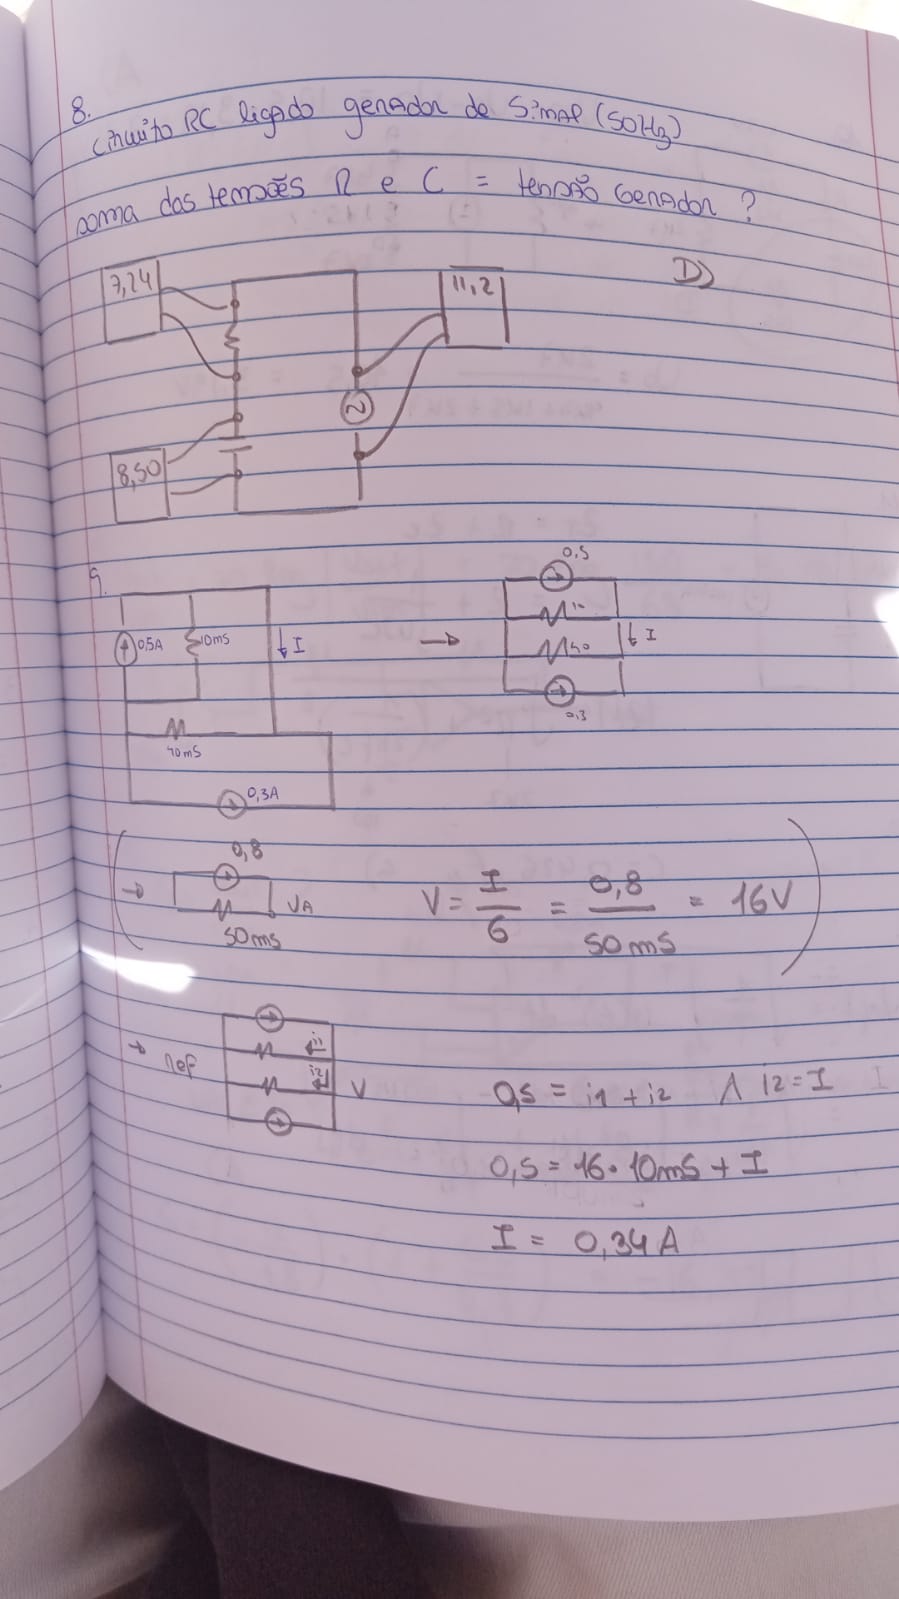 8.
Circuito RC ligado gerador de Sinal (50Hz)
soma das tensões R e C = tensão Gerador ?
7,24
11,2
D)
8,50
9.
0,5A
10mS
↓ I
40mS
0,3A
→
0,5
10
40
↓ I
0,3
→
0,8
VA
50mS
V = I/G = 0,8/50mS = 16V
→ ref
i1
i2
V
0,5 = i1 + i2 ∧ i2 = I
0,5 = 16 · 10mS + I
I = 0,34 A